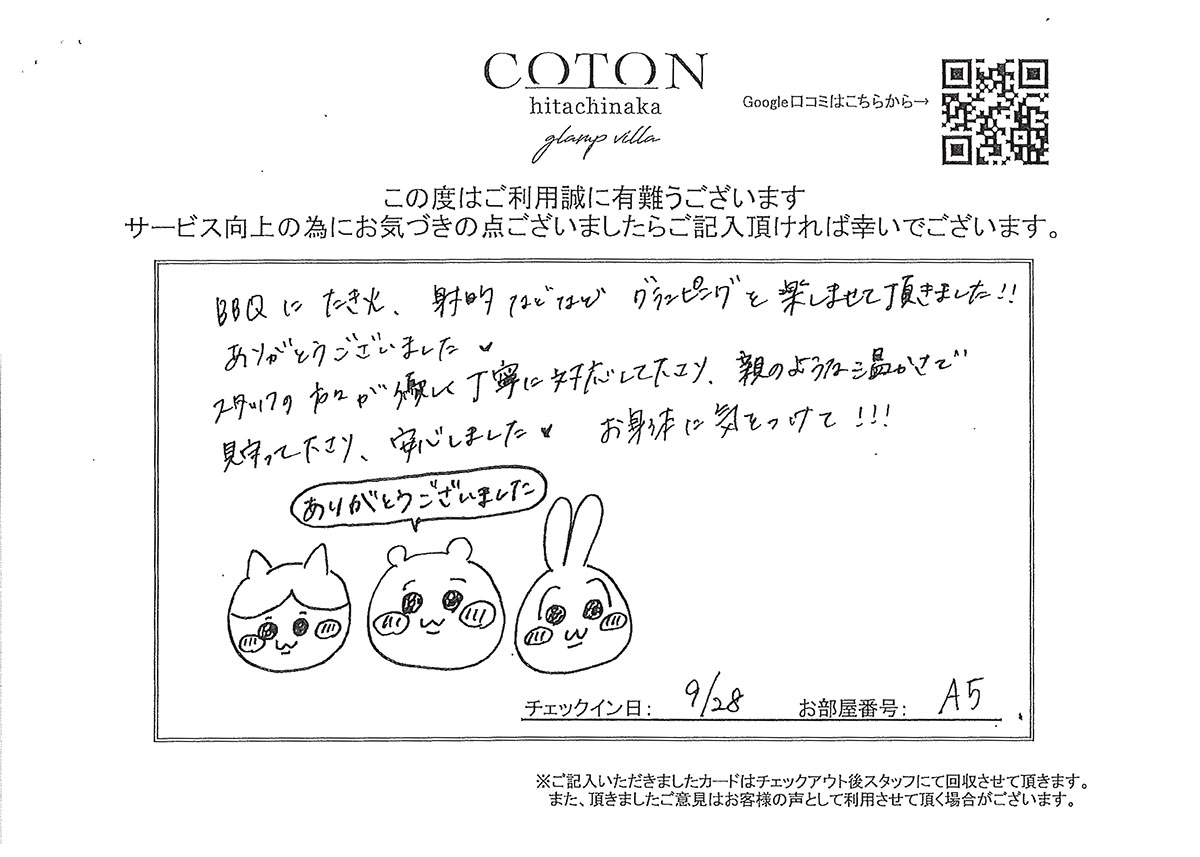 COTON
hitachinaka
glamp villa
Google口コミはこちらから→
この度はご利用誠に有難うございます
サービス向上の為にお気づきの点ございましたらご記入頂ければ幸いでございます。
BBQにたき火、射的などなど グランピングを楽しませて頂きました!!
ありがとうございました♥
スタッフの方々が優しく丁寧に対応して下さり、親のような温かさで
見守って下さり、安心しました♥ お身体に気をつけて!!!
ありがとうございました
チェックイン日: 9/28 お部屋番号: A5
※ご記入いただきましたカードはチェックアウト後スタッフにて回収させて頂きます。
また、頂きましたご意見はお客様の声として利用させて頂く場合がございます。